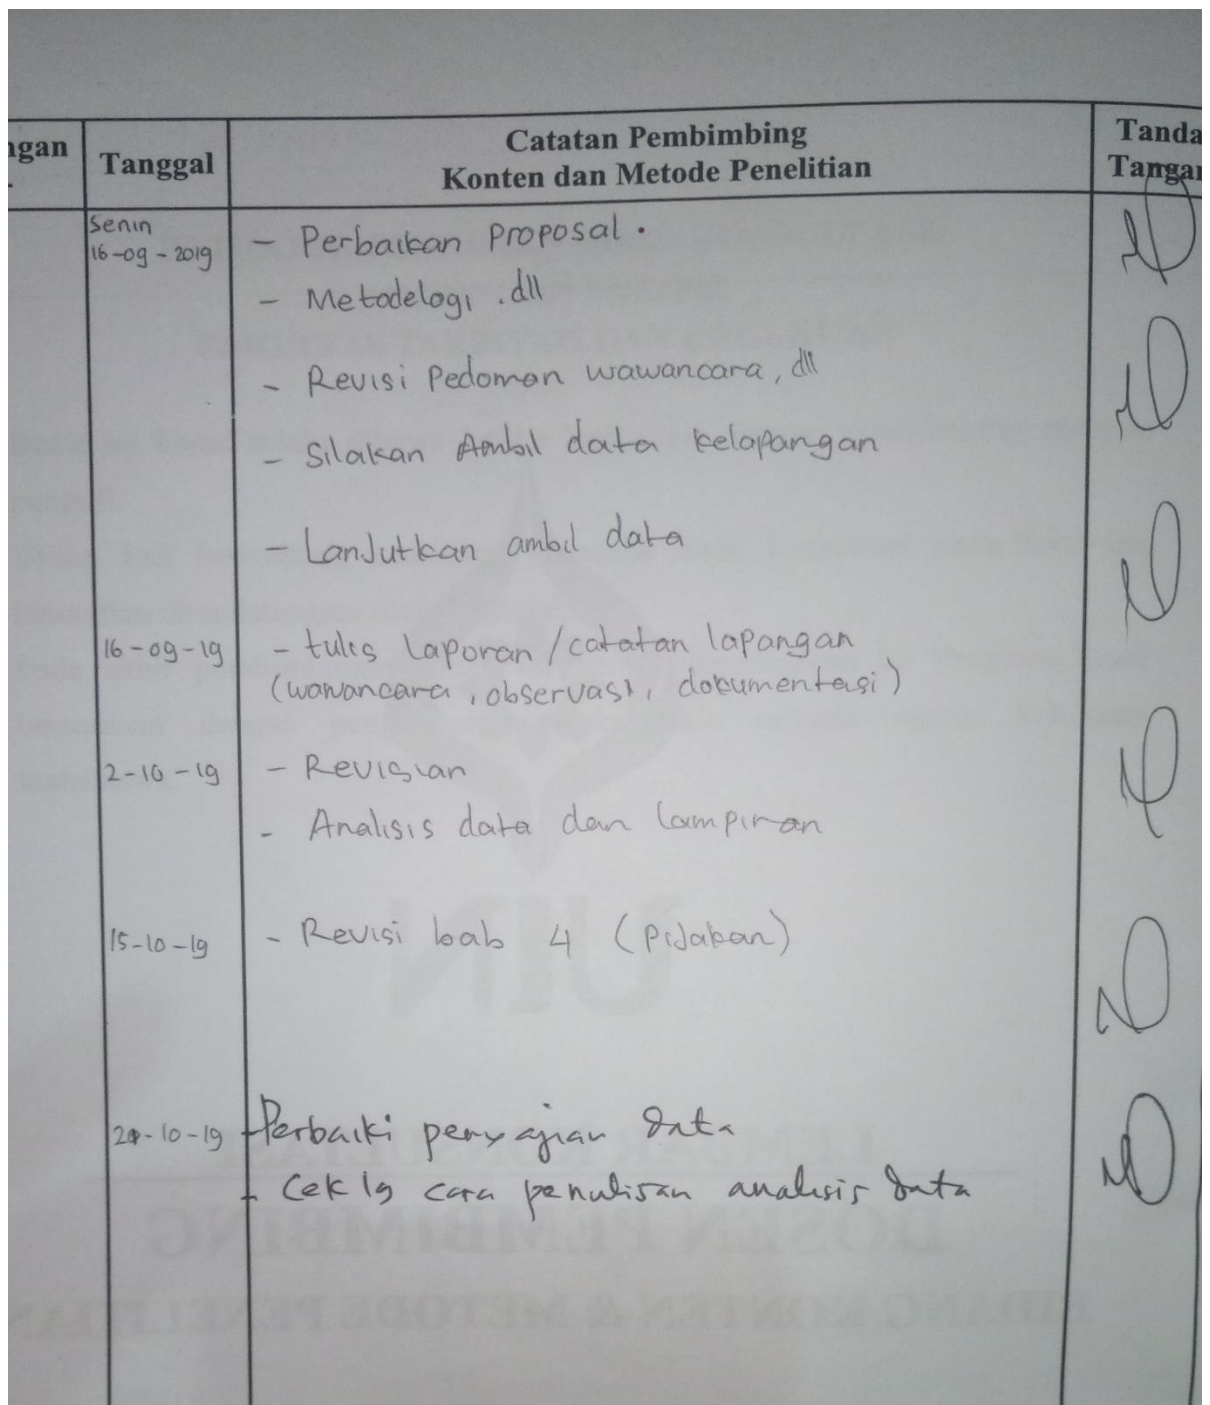 ngan Tanggal Catatan Pembimbing Tanda
Konten dan Metode Penelitian Tangan
Senin
16-09-2019 - Perbaikan Proposal.
- Metodelogi .dll
- Revisi Pedoman wawancara, dll
- Silakan Ambil data kelapangan
- Lanjutkan ambil data
16-09-19 - tulis Laporan / catatan lapangan
(wawancara, observasi, dokumentasi)
2-10-19 - Revisian
- Analisis data dan lampiran
15-10-19 - Revisi bab 4 (Pijakan)
-10-19 - Perbaiki penyajian data
- Cek lg cara penulisan analisis data
UIN
DOSEN PEMBIMBING
BIDANG KONTEN & METODE PENELITIAN